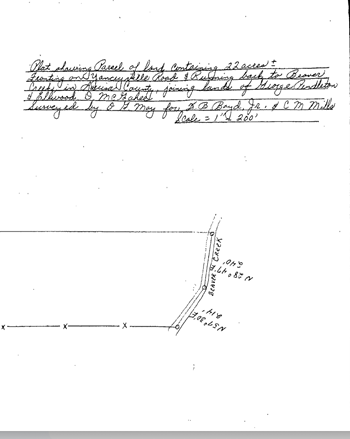 Plat showing Parcel of land Containing 22 acres ±
Fronting on Yanceyville Road & Running back to Beaver
Creek, in Louisa County, joining lands of George Pendleton
& Ellwood O. McGahee
Surveyed by O F May for, D B Boyd, Jr. & C M Mills
Scale = 1" = 200'
BEAVER CREEK
X X X